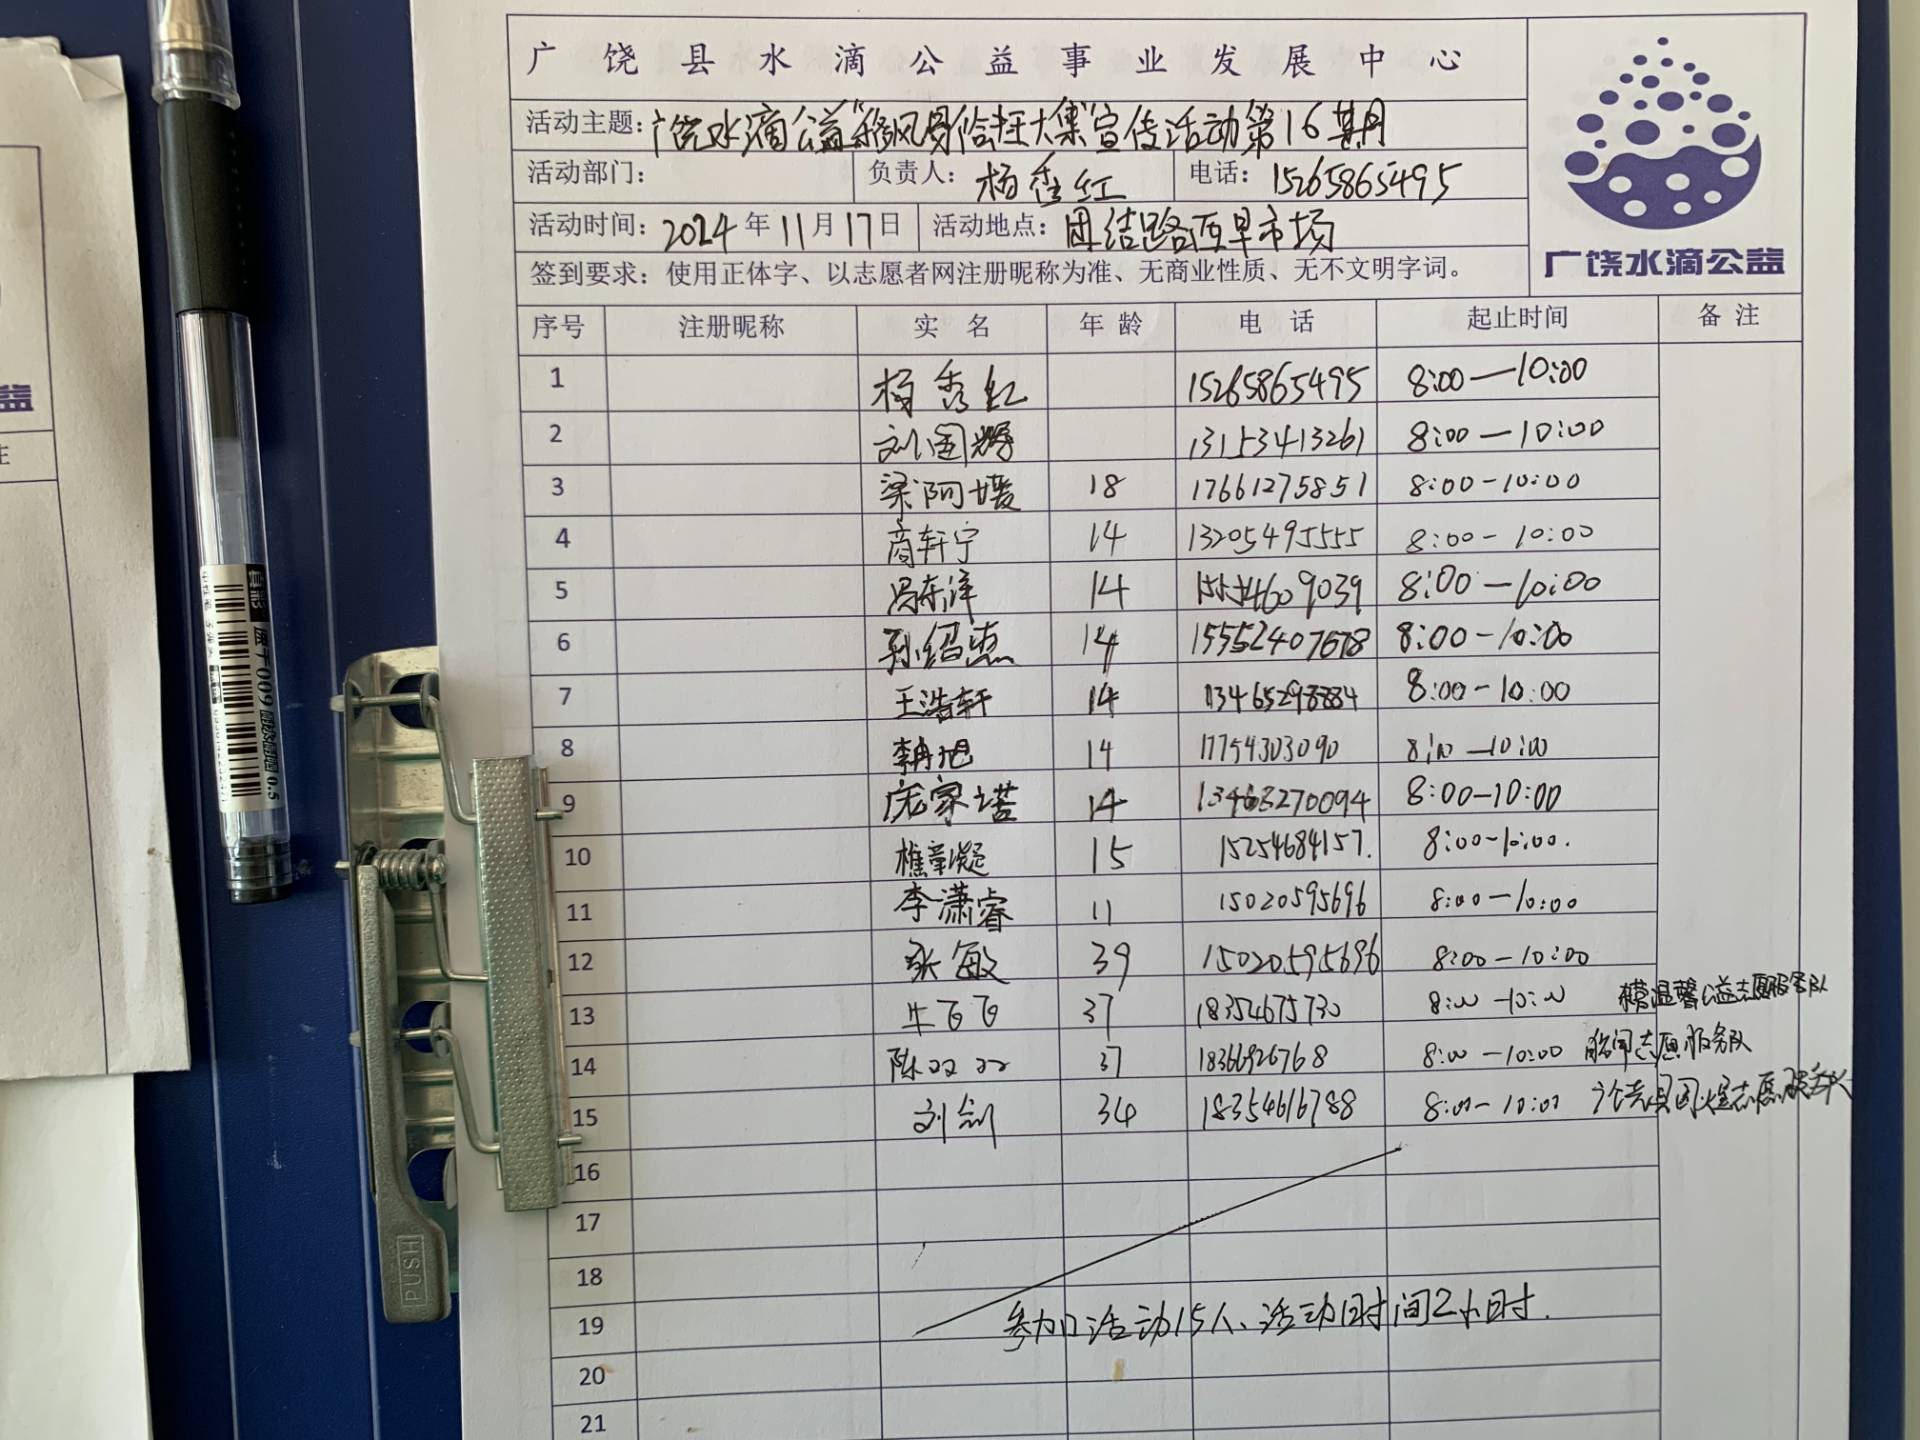 广饶县水滴公益事业发展中心
活动主题：广饶水滴公益"移风易俗赶大集"宣传活动第16期
活动部门： 负责人：杨秀红 电话：15265865495
活动时间：2024年11月17日 活动地点：团结路西早市场
签到要求：使用正体字、以志愿者网注册昵称为准、无商业性质、无不文明字词。
广饶水滴公益
序号 注册昵称 实 名 年 龄 电 话 起止时间 备 注
1 杨秀红 15265865495 8:00—10:00
2 刘国辉 13153413261 8:00—10:00
3 梁阿媛 18 17661275851 8:00-10:00
4 商轩宁 14 13205495555 8:00-10:00
5 冯东洋 14 15554609039 8:00—10:00
6 孙绍惠 14 15552407678 8:00-10:00
7 王浩轩 14 13465298884 8:00-10:00
8 14 17754303090 8:00—10:00
9 庞家 14 13463270094 8:00-10:00
10 15 15254684157. 8:00-10:00.
11 李潇睿 11 15020595696 8:00-10:00
12 张敏 39 15020595696 8:00-10:00
13 牛飞飞 37 18354675730 8:00-10:00 温馨公益志愿服务队
14 陈双双 37 18366926768 8:00-10:00 志愿服务队
15 刘剑 34 18354616788 8:00-10:00
16
17
18
19
参加活动15人、活动时间2小时.
20
21
PUSH
0.5
益
注